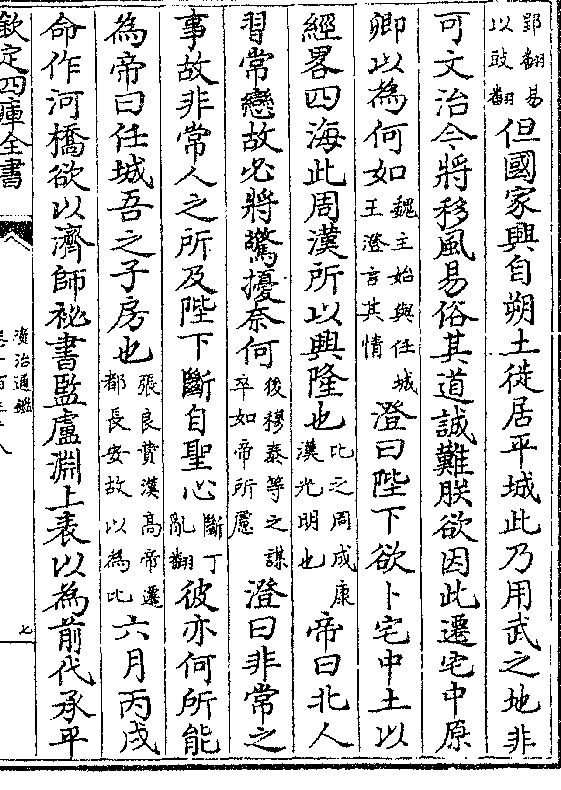 郢翻易
以豉翻
但國家興自朔土徙居平城此乃用武之地非
可文治今將移風易俗其道誠難朕欲因此遷宅中原
卿以為何如
魏主始與任城
王澄言其情
澄曰陛下欲卜宅中土以
經畧四海此周漢所以興隆也
比之周成康
漢光明也
帝曰北人
習常戀故必將驚擾奈何
後穆泰等之謀
卒如帝所慮
澄曰非常之
事故非常人之所及陛下斷自聖心
斷丁
亂翻
彼亦何所能
為帝曰任城吾之子房也
張良賛漢高帝遷
都長安故以為比
六月丙戌
命作河橋欲以濟師祕書監盧淵上表以為前代承平
欽定四庫全書
資治通鑑
七